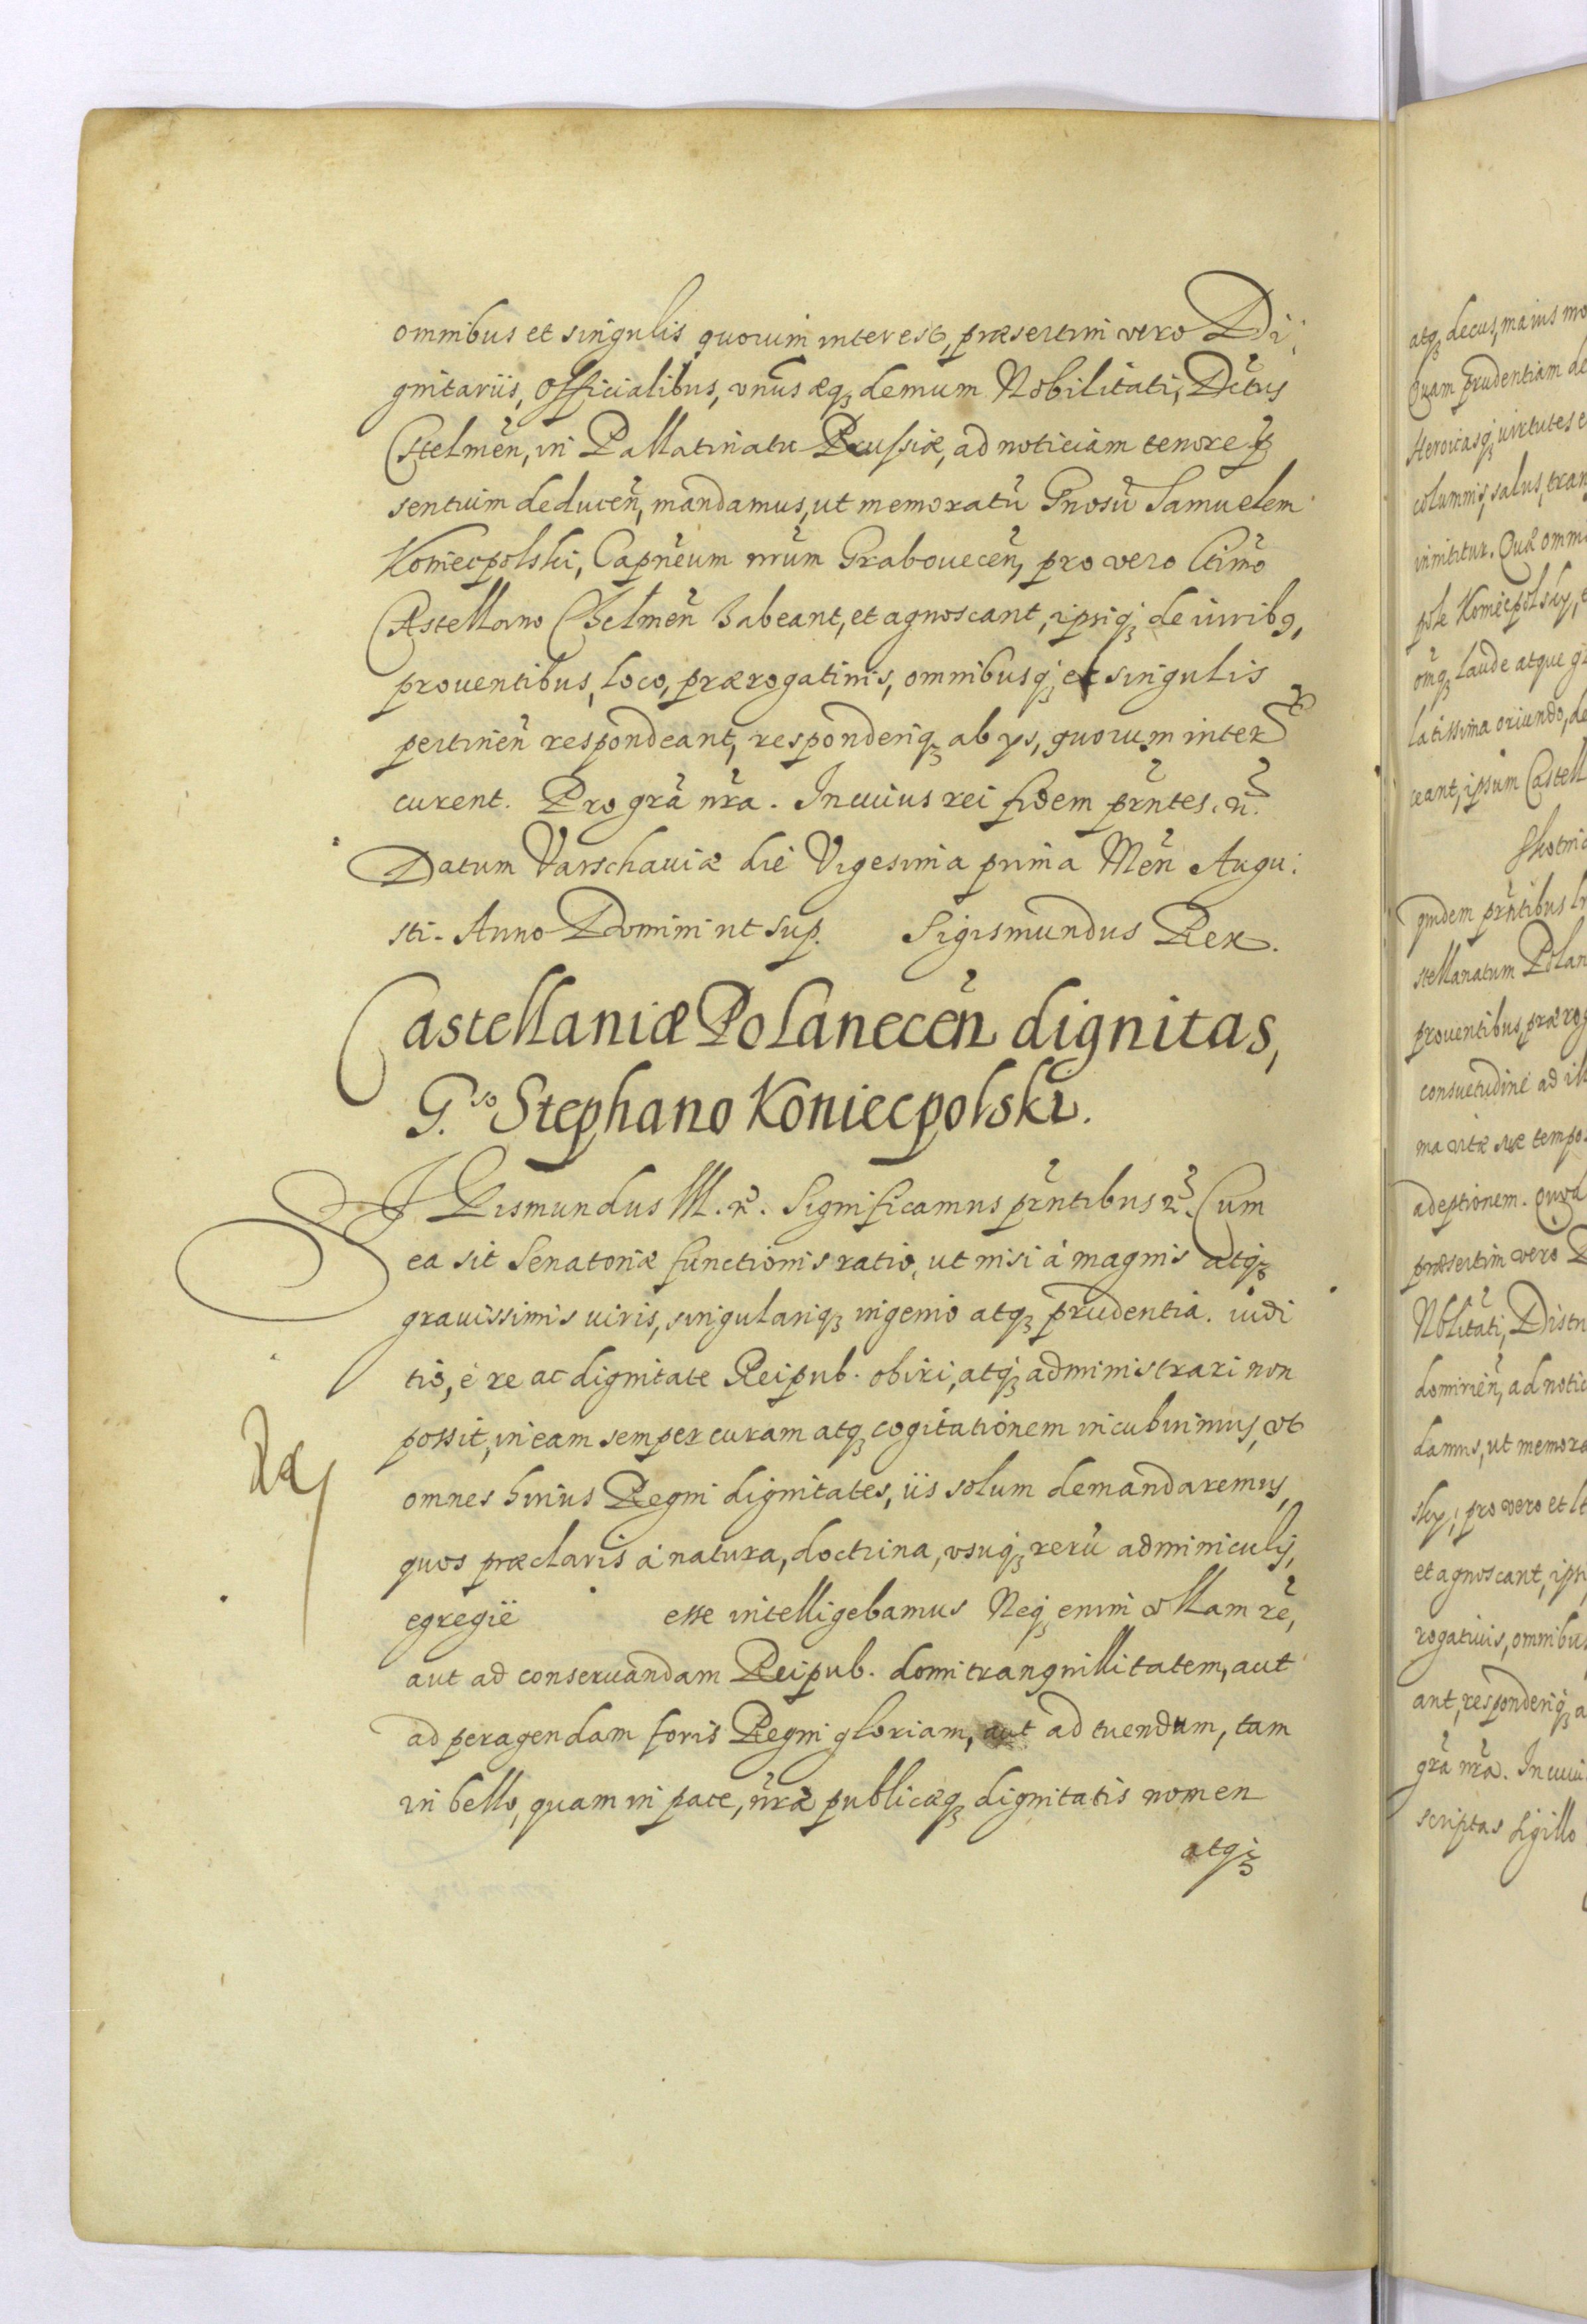 omnibus et singulis quorum interest, præsertim vero Di:
gnitariis, Officialibus, vniusæq₃ demum Nobilitati, Dctus
Chelmen̄, in Pallatinatu Prussiæ, ad noticiam tenore p̄
sentium deducen̄, mandamus, ut memoratū Gnosū Samuelem
Koniecpolski, Capneum nrum Grabouecen̄, pro vero ltimo
Castellano Chelmen̄ habeant, et agnoscant, ipsiq₃ de iuribq,
prouentibus, loco, prærogatiuis, omnibusq₃ et singulis
pertinen̄ respondeant, responderiq₃ ab ys, quorum inter e
curent. Pro grā nrā. In cuius rei fidem prntes. n̄.
Datum Varschauiæ die Vigesima prima Men̄ Augu:
sti. Anno Domini ut sup. Sigismundus Rex.
Castellaniæ Polanecen̄ dignitas,
G.so Stephano Koniecpolski.
SIGismundus III. n̄. Significamus prntibus n̄. Cum
ea sit Senatoriæ functionis ratio, ut nisi à magnis atq₃
grauissimis uiris, singulariq₃ ingenio atq₃ prudentia. iudi
tio, è re ac dignitate Reipub. obiri, atq₃ administrari non
possit, in eam semper curam atq₃ cogitationem incubuimus, vt
omnes huius Regni dignitates, iis solum demandaremus,
quos præclaris à natura, doctrina, vsuq₃ rerū adminiculij,
egregiè esse intelligebamus Neq₃ enim vllam rē,
aut ad conseruandam Reipub. domi tranquillitatem, aut
ad peragendam foris Regni gloriam, aut ad tuendum, tam
in bello, quam in pace, nrā publicæq₃ dignitatis nomen
atq₃
atq₃ decus, maius mo
Quam prudentiam de
Heroicasq₃ uirtutes e
columnis, salus, tran
innititur. Quæ omni
pole Koniecpolsky, t
omq₃ laude atque gl
latissima oriundo, de
ceant, ipsum Castell
quidem prntibus lr
stellanatum Polan
prouentibus, prærog
consuetudine ad ill
ma vitæ suæ tempo
adeptionem. Quod
præsertim vero D
Nblitati, Distri
dominen̄, ad notic
damus, ut memora
sky, pro vero et lt
et agnoscant, ipsi
rogatiuis, omnibus
ant, responderiq₃ a
grā nrā. In cuiu
scriptas sigillo